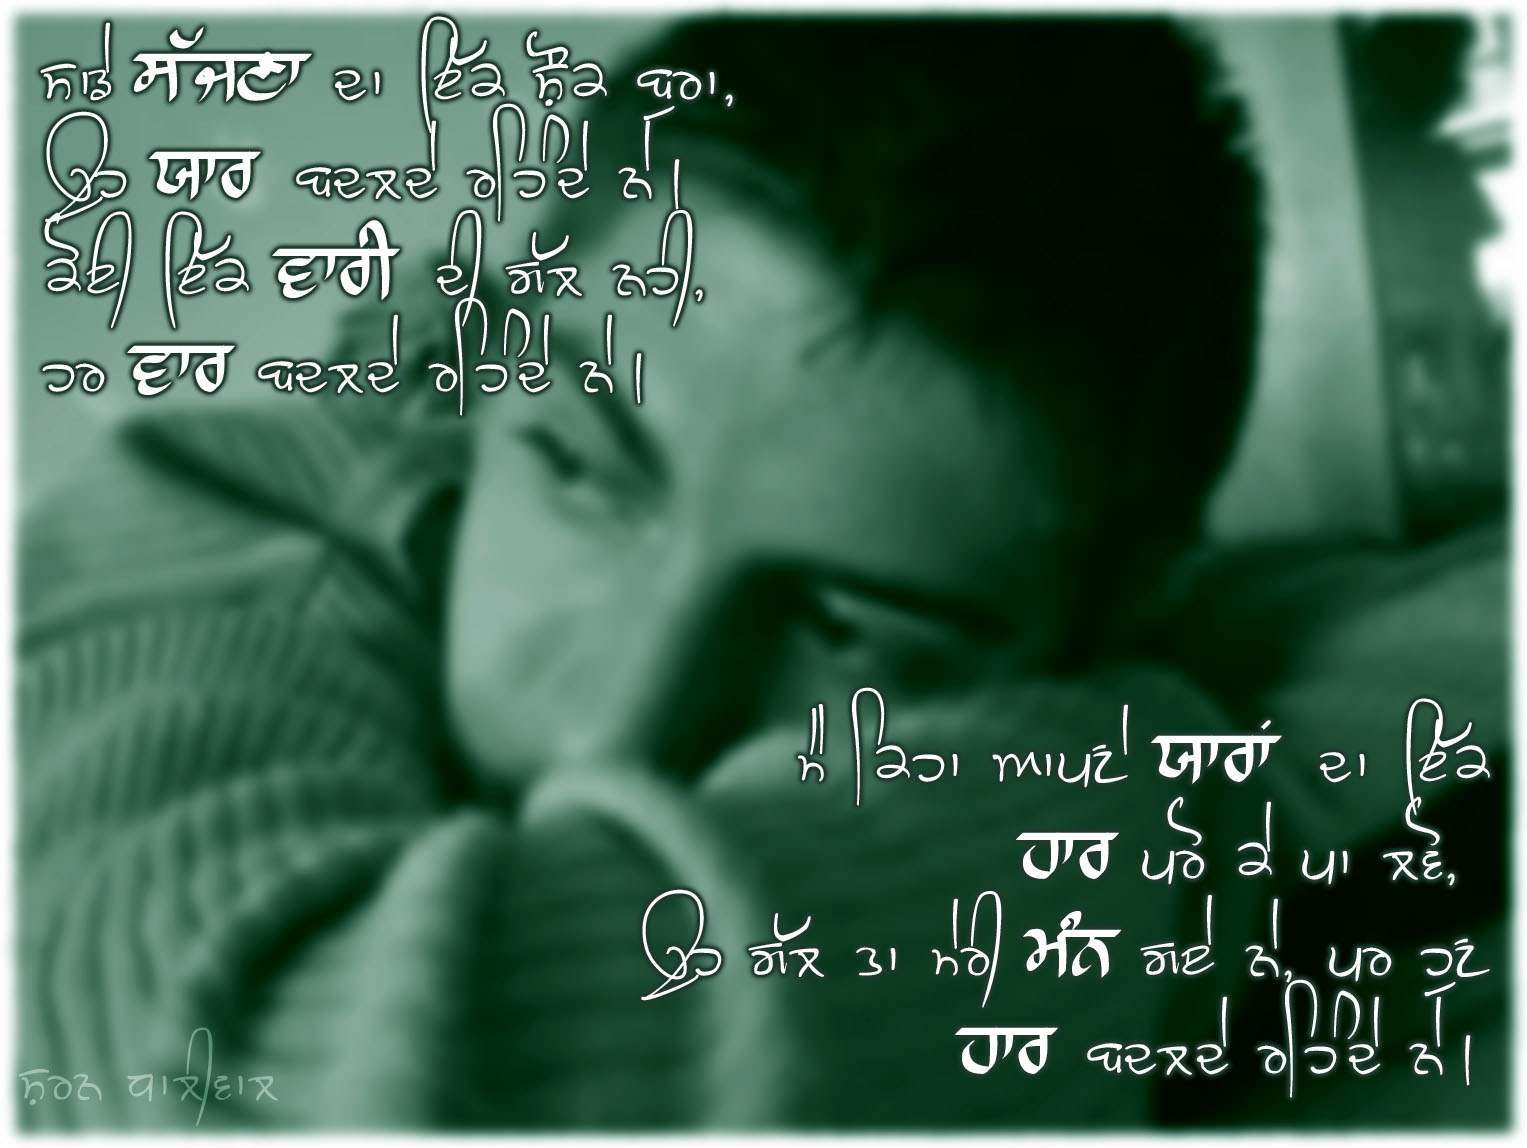 ਸਾਡੇ ਸੱਜਣਾ ਦਾ ਇੱਕ ਸ਼ੌਕ ਬੁਰਾ,
ਉਹ ਯਾਰ ਬਦਲਦੇ ਰਹਿੰਦੇ ਨੇ।
ਕੋਈ ਇੱਕ ਵਾਰੀ ਦੀ ਗੱਲ ਨਹੀ,
ਹਰ ਵਾਰ ਬਦਲਦੇ ਰਹਿੰਦੇ ਨੇ।
ਮੈਂ ਕਿਹਾ ਆਪਣੇ ਯਾਰਾਂ ਦਾ ਇੱਕ
ਹਾਰ ਪਰੋ ਕੇ ਪਾ ਲਵੋ,
ਉਹ ਗੱਲ ਤਾ ਮੇਰੀ ਮੰਨ ਗਏ ਨੇ, ਪਰ ਹੁਣ
ਹਾਰ ਬਦਲਦੇ ਰਹਿੰਦੇ ਨੇ।
ਸ਼ਰਨ ਧਾਲੀਵਾਲ